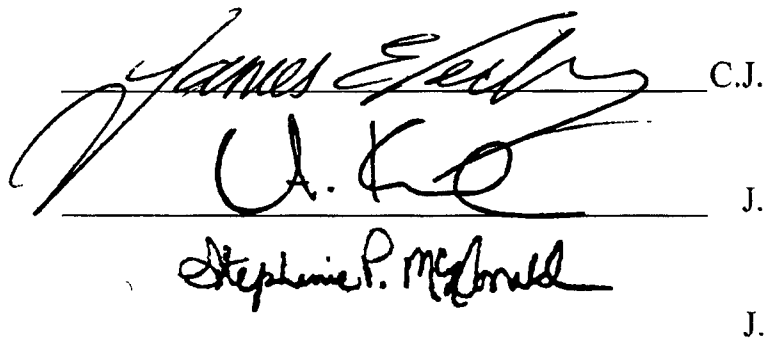 James E. C.J.
A. K J.
Stephanie P. McDonald J.